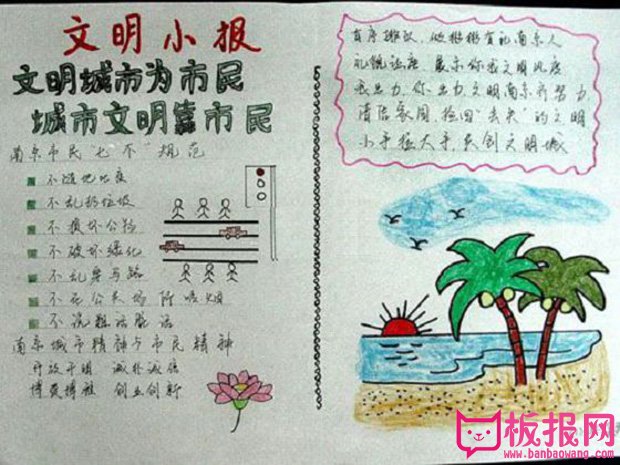 文明小报
文明城市为市民
城市文明靠市民
南京市民"七不"规范
不随地吐痰
不乱扔垃圾
不损坏公物
不破坏绿化
不乱穿马路
不在公共场所吸烟
不说粗话脏话
南京城市精神与市民精神
开放开明 诚朴诚信
博爱博雅 创业创新
有序排队，做彬彬有礼南京人
礼貌让座 展示你我文明风度
我出力，你出力，文明南京齐努力
清洁家园，捡回"丢失"的文明
小手拉大手，共创文明城
板报网
www.banbaowang.com